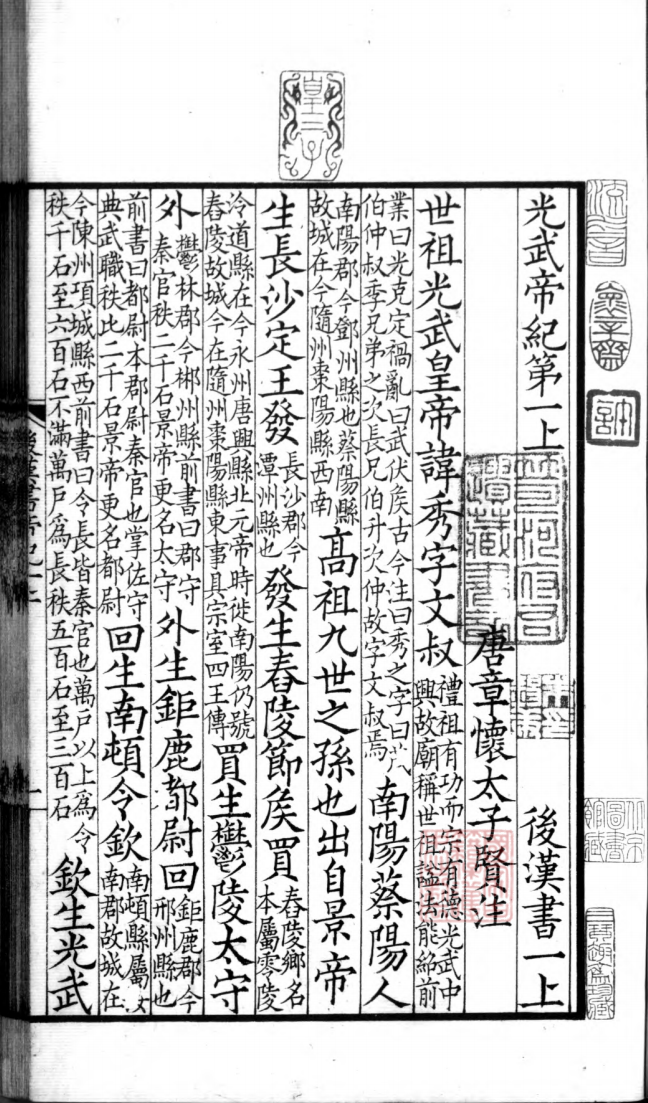 光武帝紀第一上 後漢書一上
唐章懷太子賢注
世祖光武皇帝諱秀字文叔
禮祖有功而宗有德光武中
興故廟稱世祖諡法能紹前
業曰光克定禍亂曰武伏侯古今注曰秀之字曰茂
伯仲叔季兄弟之次長兄伯升次仲故字文叔焉
南陽蔡陽人
南陽郡今鄧州縣也蔡陽縣
故城在今隨州棗陽縣西南
高祖九世之孫也出自景帝
生長沙定王發
長沙郡今
潭州縣也
發生舂陵節侯買
舂陵鄉名
本屬零陵
冷道縣在今永州唐興縣北元帝時徙南陽仍號
舂陵故城今在隨州棗陽縣東事具宗室四王傳
買生鬱陵太守
外
鬱林郡今郴州縣前書曰郡守
秦官秩二千石景帝更名太守
外生鉅鹿都尉回
鉅鹿郡今
邢州縣也
前書曰都尉本郡尉秦官也掌佐守
典武職秩比二千石景帝更名都尉
回生南頓令欽
南頓縣屬汝
南郡故城在
今陳州項城縣西前書曰令長皆秦官也萬戶以上爲令
秩千石至六百石不滿萬戶爲長秩五百石至三百石
欽生光武
後漢書帝紀一上
一
皇三子